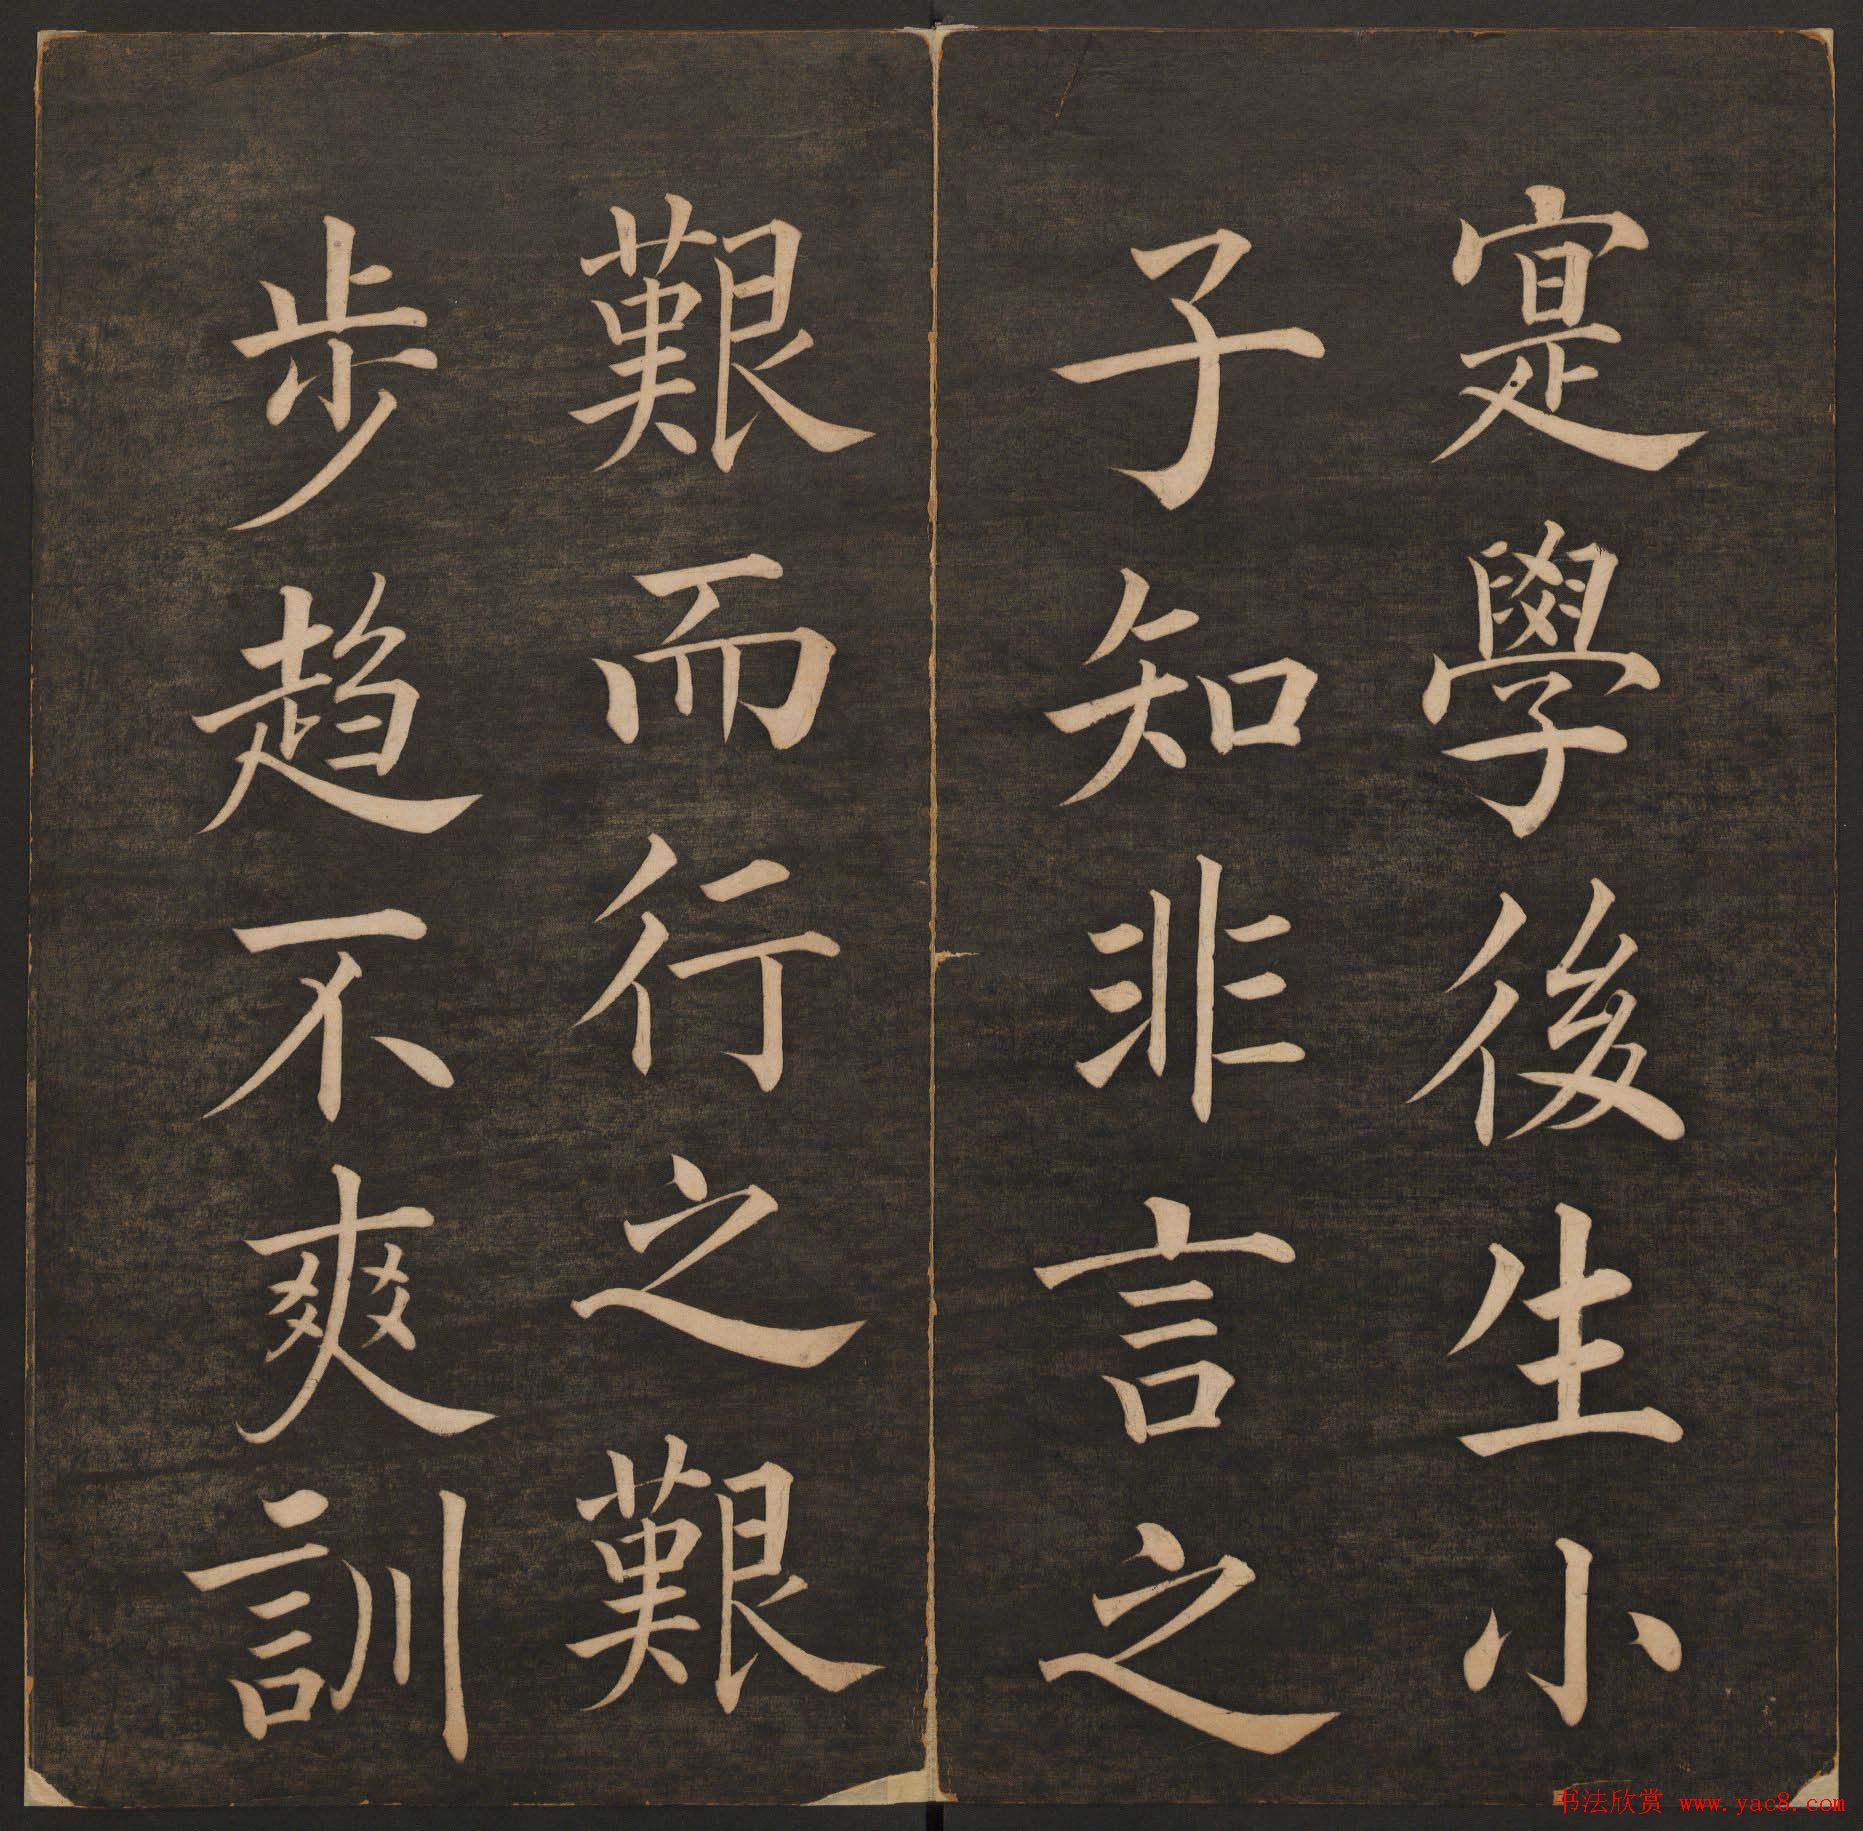 寔學後生小
子知非言之
艱而行之艱
步趨不爽訓
书法欣赏 www.yac8.com